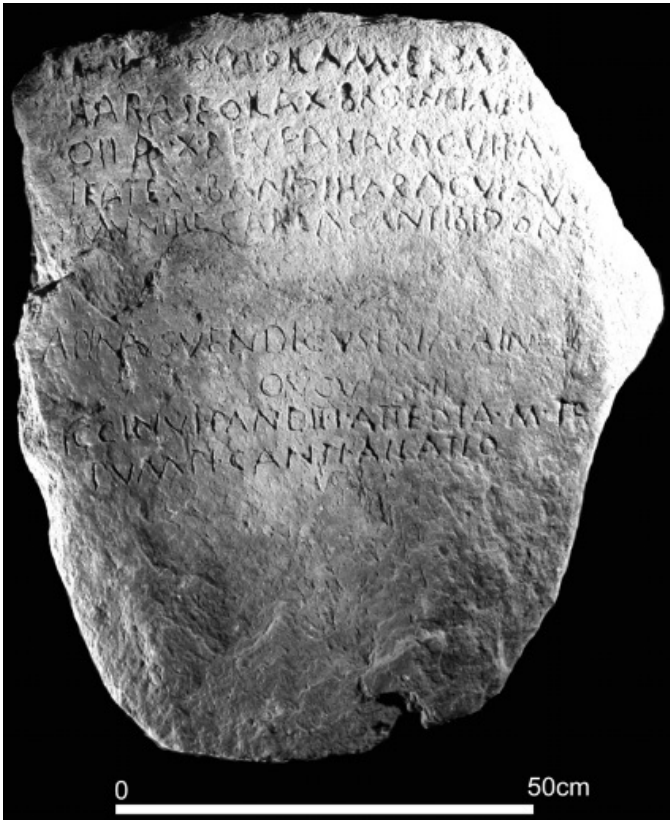 OILAM·ERBAM
HARASE OILA·X·BROENEIAE·H
OILA·X·REVE AHARACVI·T·AV
IEATE·X·BANDI HARACVI AV
MVNITIE CARLA CANTIBIDONE
APINVS·VENDICVS·ERIACAINV
OVOVIANI
ICCINVI·PANDITI·ATTEDIA·M·TR
PVMPI·CANTI·AILATIO